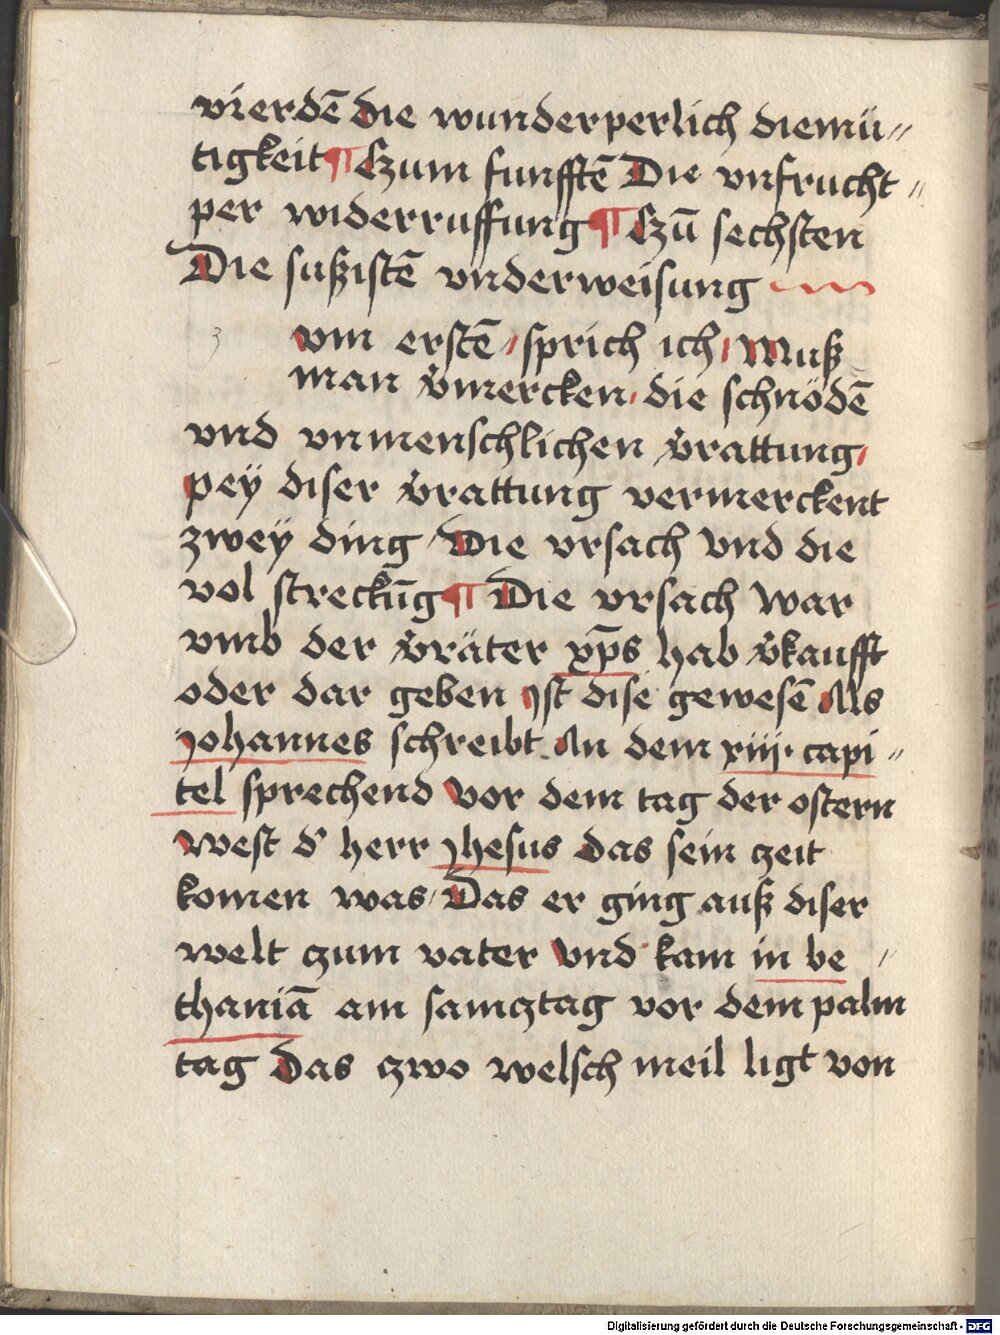 vierdē die wunderperlich diemü〃
tigkeit ¶ Czum funfftē Die vnfrucht〃
per widerruffung ¶ Czū sechsten
Die sußistē vnderweisung
3 vm erstē / sprich ich / Muß
man v̄mercken / die schnödē
vnd vnmenschlichen v̄rattung /
pey diser v̄rattung vermerckent
zwey ding / Die vrsach vnd die
vol streckūg ¶ Die vrsach war
vmb der v̄räter xp̄s hab v̄kaufft
oder dar geben Jst dise gewesē Als
Johannes schreibt An dem xiij · capi〃
tel sprechend Vor dem tag der ostern
West d' herr Jhesus das sein zeit
komen was / Das er ging auß diser
welt czum vater Vnd kam in be /
thaniā am samcztag vor dem palm
tag Das czwo welsch meil ligt von
Digitalisierung gefördert durch die Deutsche Forschungsgemeinschaft - DFG